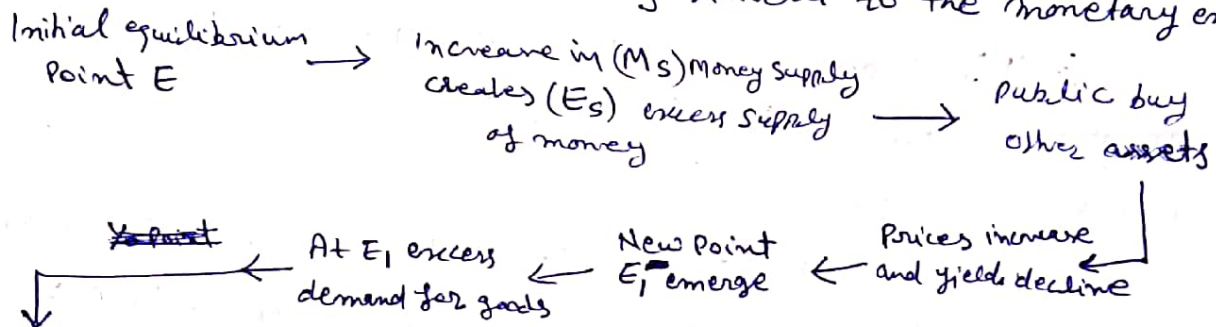 to the monetary
Initial equilibrium
Point E → Increase in (Ms) Money Supply
creates (Es) excess supply
of money → public buy
other assets
Prices increase
and yields decline
← New Point
E1 emerge
← At E1 excess
demand for goods